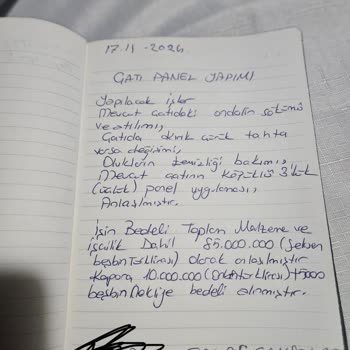 17.11-2024
ÇATI PANEL YAPIMI
Yapılacak işler
Mevcut çatıdaki ondolin sökümü
ve atılımı,
Çatıda çürük tahta
varsa değişimi,
Olukların temizliği bakımı,
Mevcut çatının köpüklü 3'lük
panel uygulaması,
Anlaşılmıştır.
İşin Bedeli Toplam Malzeme ve
işçilik Dahil 85.000.000 (Seksen
beşbin Türklirası) olarak anlaşılmıştır
Kapora 10.000.000 (Onbin türklirası) + 5000
beşbin Nakliye bedeli alınmıştır.